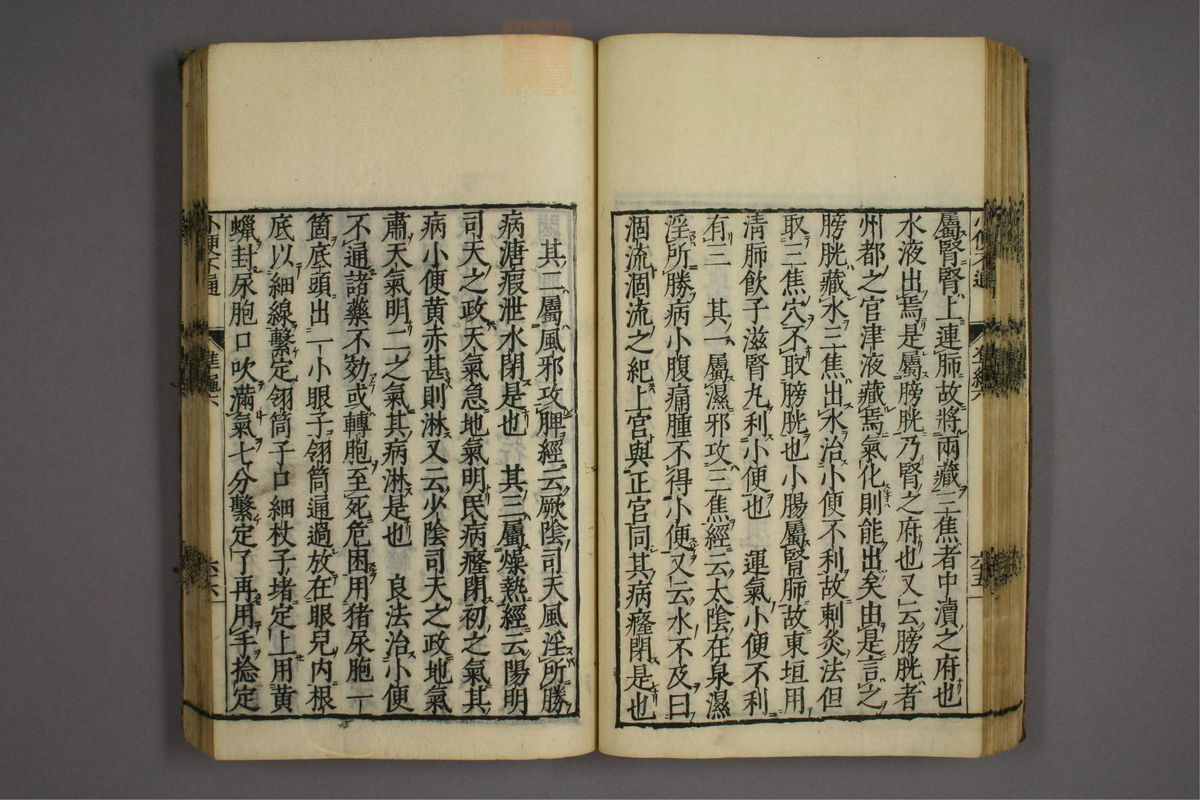 屬腎腎上連肺故將兩藏三焦者中瀆之府也
水液出焉是屬膀胱乃腎之府也又云膀胱者
州都之官津液藏焉氣化則能出矣由是言之
膀胱藏水三焦出水治小便不利故刺灸法但
取三焦穴不取膀胱也小腸屬腎肺故東垣用
清肺飲子滋腎丸利小便也　運氣小便不利
有三　其一屬濕邪攻三焦經云太陰在泉濕
淫所勝病小腹痛腫不得小便又云水不及曰
涸流涸流之紀上宮與正宮同其病癃閉是也
其二屬風邪攻脾經云厥陰司天風淫所勝
病溏瘕泄水閉是也　其三屬燥熱經云陽明
司天之政天氣急地氣明民病癃閉初之氣其
病小便黄赤甚則淋又云少陰司天之政地氣
肅天氣明二之氣其病淋是也　良法治小便
不通諸藥不効或轉胞至死危困用猪尿胞一
箇底頭出一小眼子翎筒通過放在眼兒内根
底以細線繫定翎筒子口細杖子堵定上用黄
蠟封尿胞口吹滿氣七分繫定了再用手捻定
小便不通　準繩六　六六